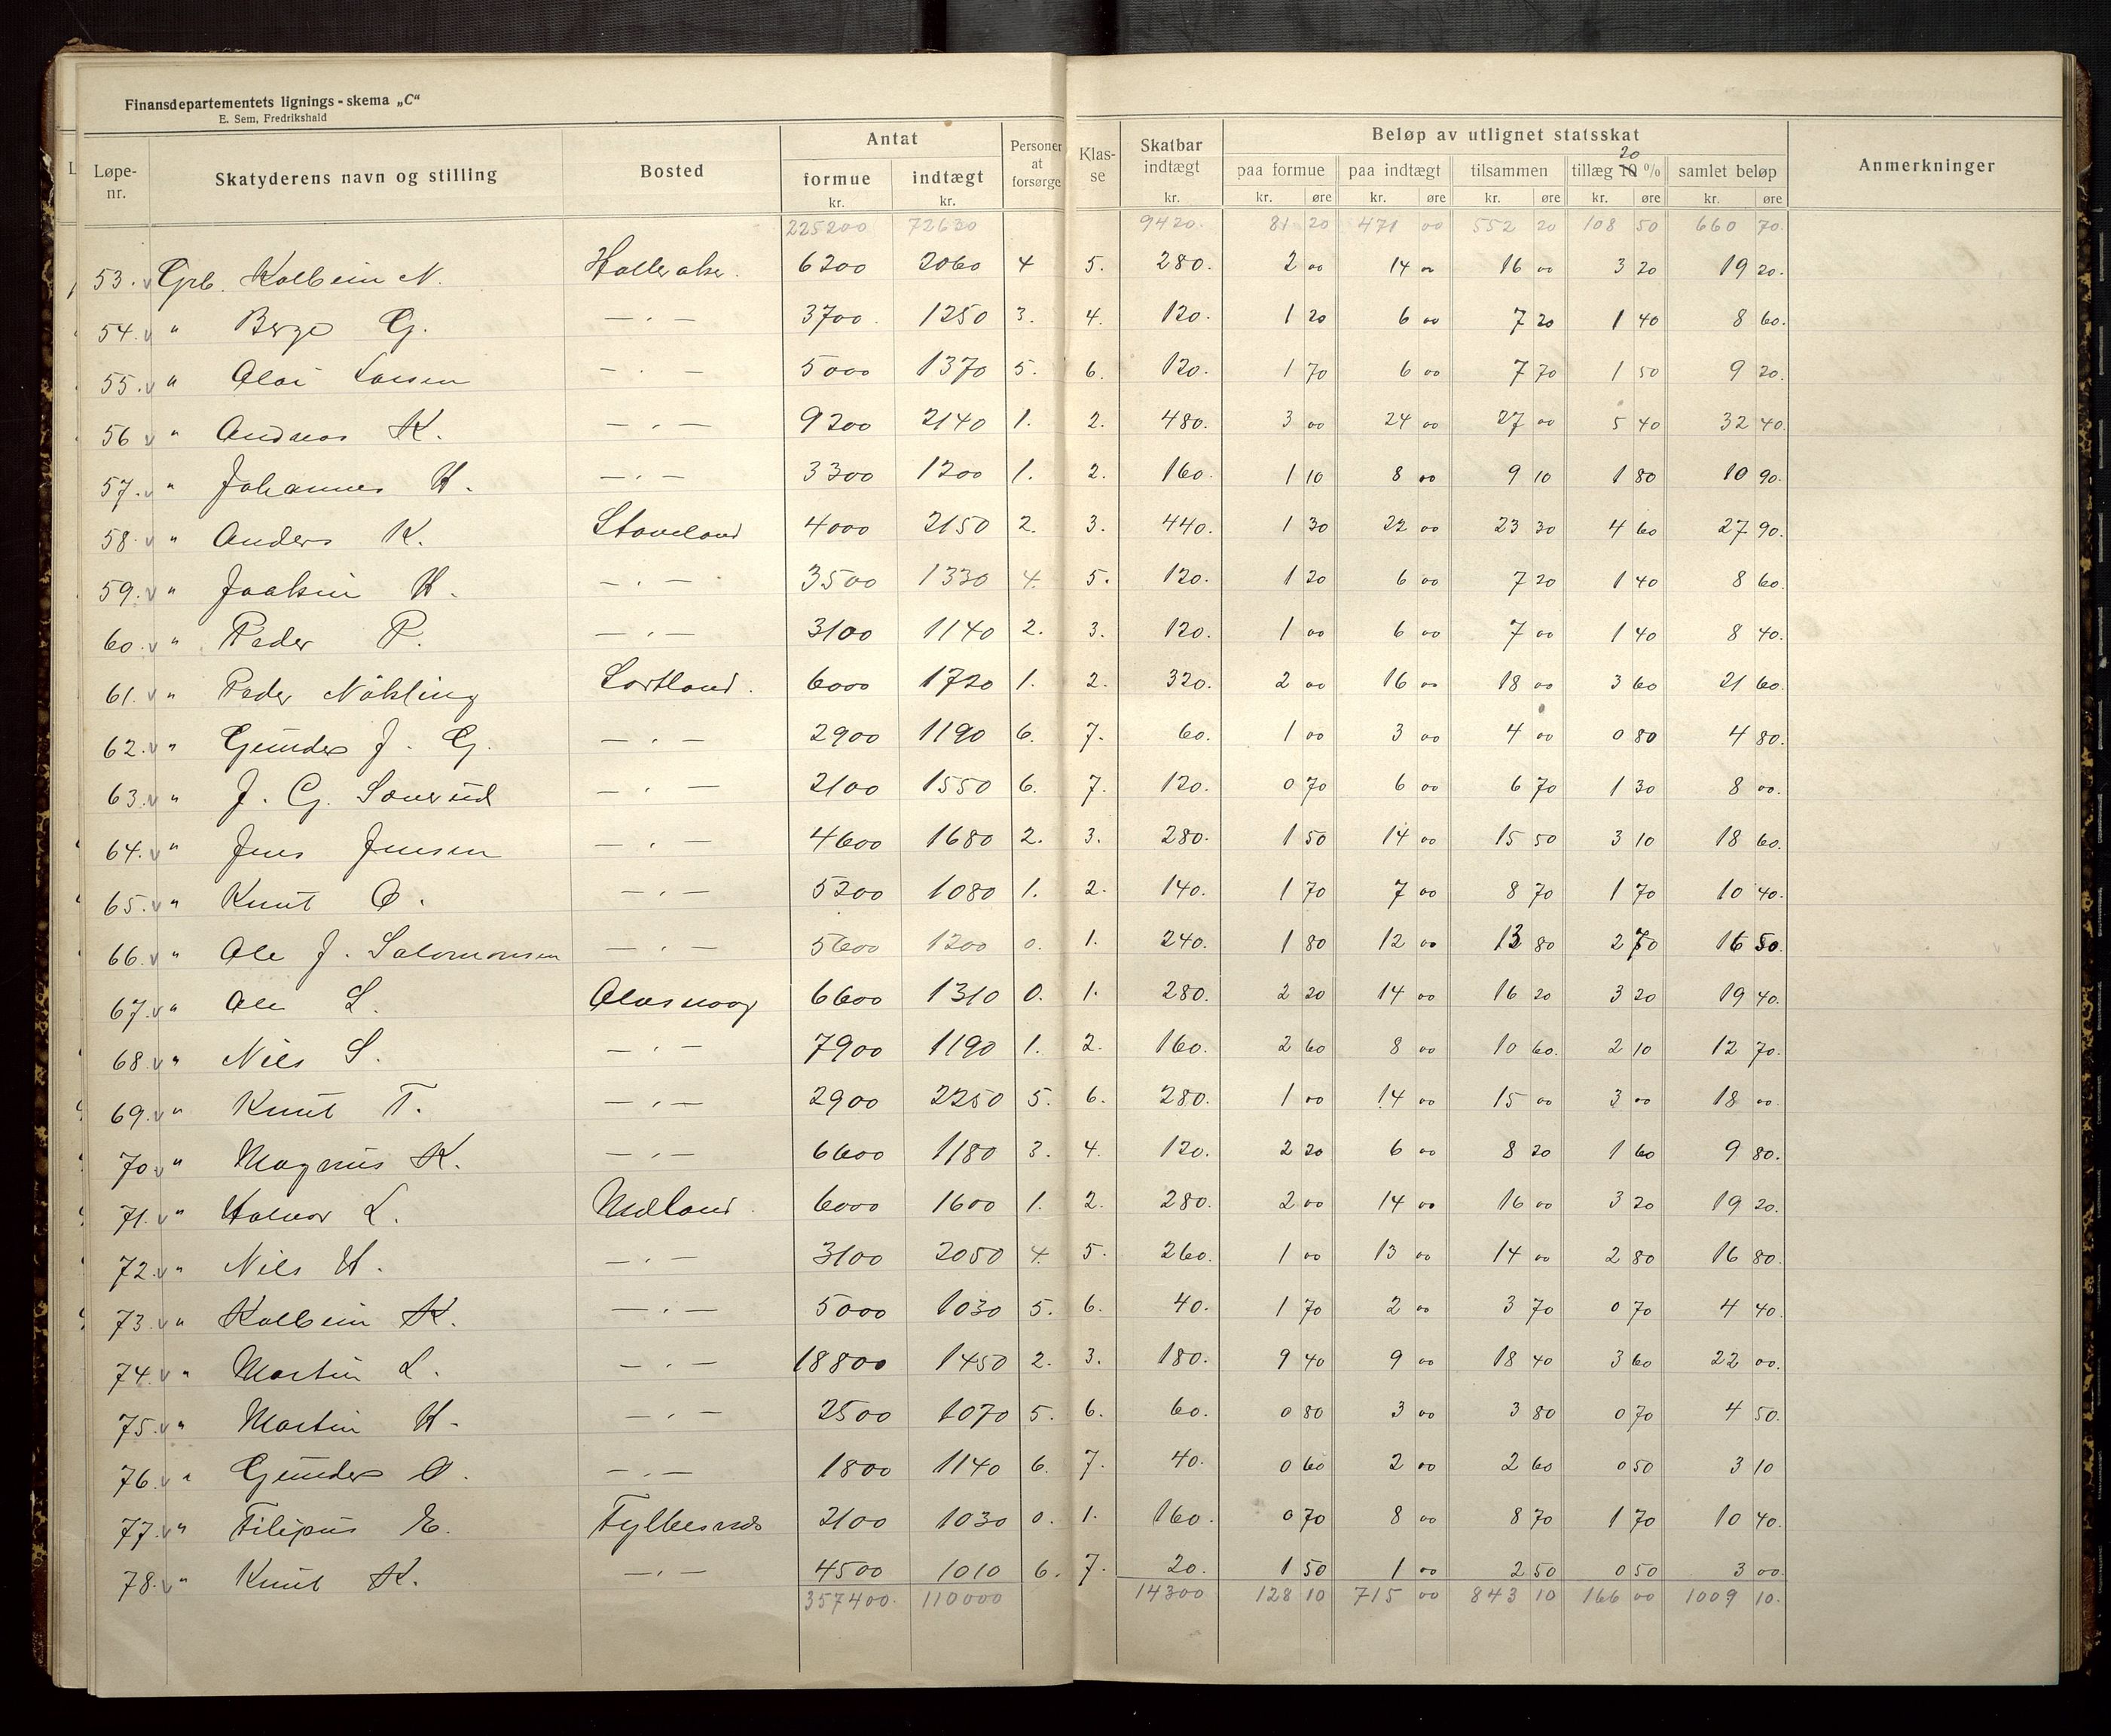 Finansdepartementets lignings-skema „C“
E. Sem, Fredrikshald
Løpe-nr. Skatyderens navn og stilling Bosted Antat formue kr. indtægt kr. Personer at forsørge Klas-se Skatbar indtægt kr. Beløp av utlignet statsskat paa formue kr. øre paa indtægt kr. øre tilsammen kr. øre tillæg 10 20 % kr. øre samlet beløp kr. øre Anmerkninger
225200 72630 9420. 81 20 471 00 552 20 108 50 660 70.
53. v Grb. Kolbein N. 6200 2060 4 5. 280. 2 00 14 00 16 00 3 20 19 20.
54. v " Berge G. — " — 3700. 1250 3. 4. 120. 1 20 6 00 7 20 1 40 8 60.
55. v " Olai Larsen — " — 5000 1370 5. 6. 120. 1 70 6 00 7 70 1 50 9 20.
56 v " Andreas K. — " — 9200 2140 1. 2. 480. 3 00 24 00 27 00 5 40 32 40.
57. v " Johannes H. — " — 3300 1200 1. 2. 160. 1 10 8 00 9 10 1 80 10 90.
58. v " Anders K. Staveland 4000 2150 2. 3. 440. 1 30 22 00 23 30 4 60 27 90.
59. v " Joakim H. — " — 3500 1330 4. 5. 120. 1 20 6 00 7 20 1 40 8 60.
60. v " Peder P. — " — 3100 1140 2. 3. 120. 1 00 6 00 7 00 1 40 8 40.
61. v " Peder Nökling Sortland. 6000 1720 1. 2. 320. 2 00 16 00 18 00 3 60 21 60.
62. v " Gunder J. G. — " — 2900 1190 6. 7. 60. 1 00 3 00 4 00 0 80 4 80.
63. v " J. G. — " — 2100 1550 6. 7. 120. 0 70 6 00 6 70 1 30 8 00.
64. v " Jens Jensen — " — 4600 1680 2. 3. 280. 1 50 14 00 15 50 3 10 18 60.
65. v " Knut O. — " — 5200 1080 1. 2. 140. 1 70 7 00 8 70 1 70 10 40.
66. v " Ole J. Salomonsen — " — 5600 1200 0. 1. 240. 1 80 12 00 13 80 2 70 16 50.
67. v " Ole L. 6600 1310 0. 1. 280. 2 20 14 00 16 20 3 20 19 40.
68. v " Nils S. — " — 7900 1190 1. 2. 160. 2 60 8 00 10 60. 2 10 12 70.
69. v " Knut T. — " — 2900 2250 5. 6. 280. 1 00 14 00 15 00 3 00 18 00.
70 v " Magnus K. — " — 6600 1180 3. 4. 120. 2 20 6 00 8 20 1 60 9 80.
71. v " Halvor L. Nedland. 6000 1600 1. 2. 280. 2 00 14 00 16 00 3 20 19 20.
72. v " Nils H. — " — 3100 2050 4. 5. 260. 1 00 13 00 14 00 2 80 16 80.
73. v " Kolbein K. — " — 5000 1030 5. 6. 40. 1 70 2 00 3 70 0 70 4 40.
74. v " Martin L. — " — 18800 1450 2. 3. 180. 9 40 9 00 18 40 3 60 22 00.
75. v " Martin H. — " — 2500 1070 5. 6. 60. 0 80 3 00 3 80 0 70 4 50.
76. v " Gunder O. — " — 1800 1140 6. 7. 40. 0 60 2 00 2 60 0 50 3 10
77. v " Filipus E. Fylkesnes 2100 1030 0. 1. 160. 0 70 8 00 8 70 1 70 10 40.
78. v " Knut K. — " — 4500 1010 6. 7. 20. 1 50 1 00 2 50 0 50 3 00.
357400. 110000 14300 128 10 715 00 843 10 166 00 1009 10.